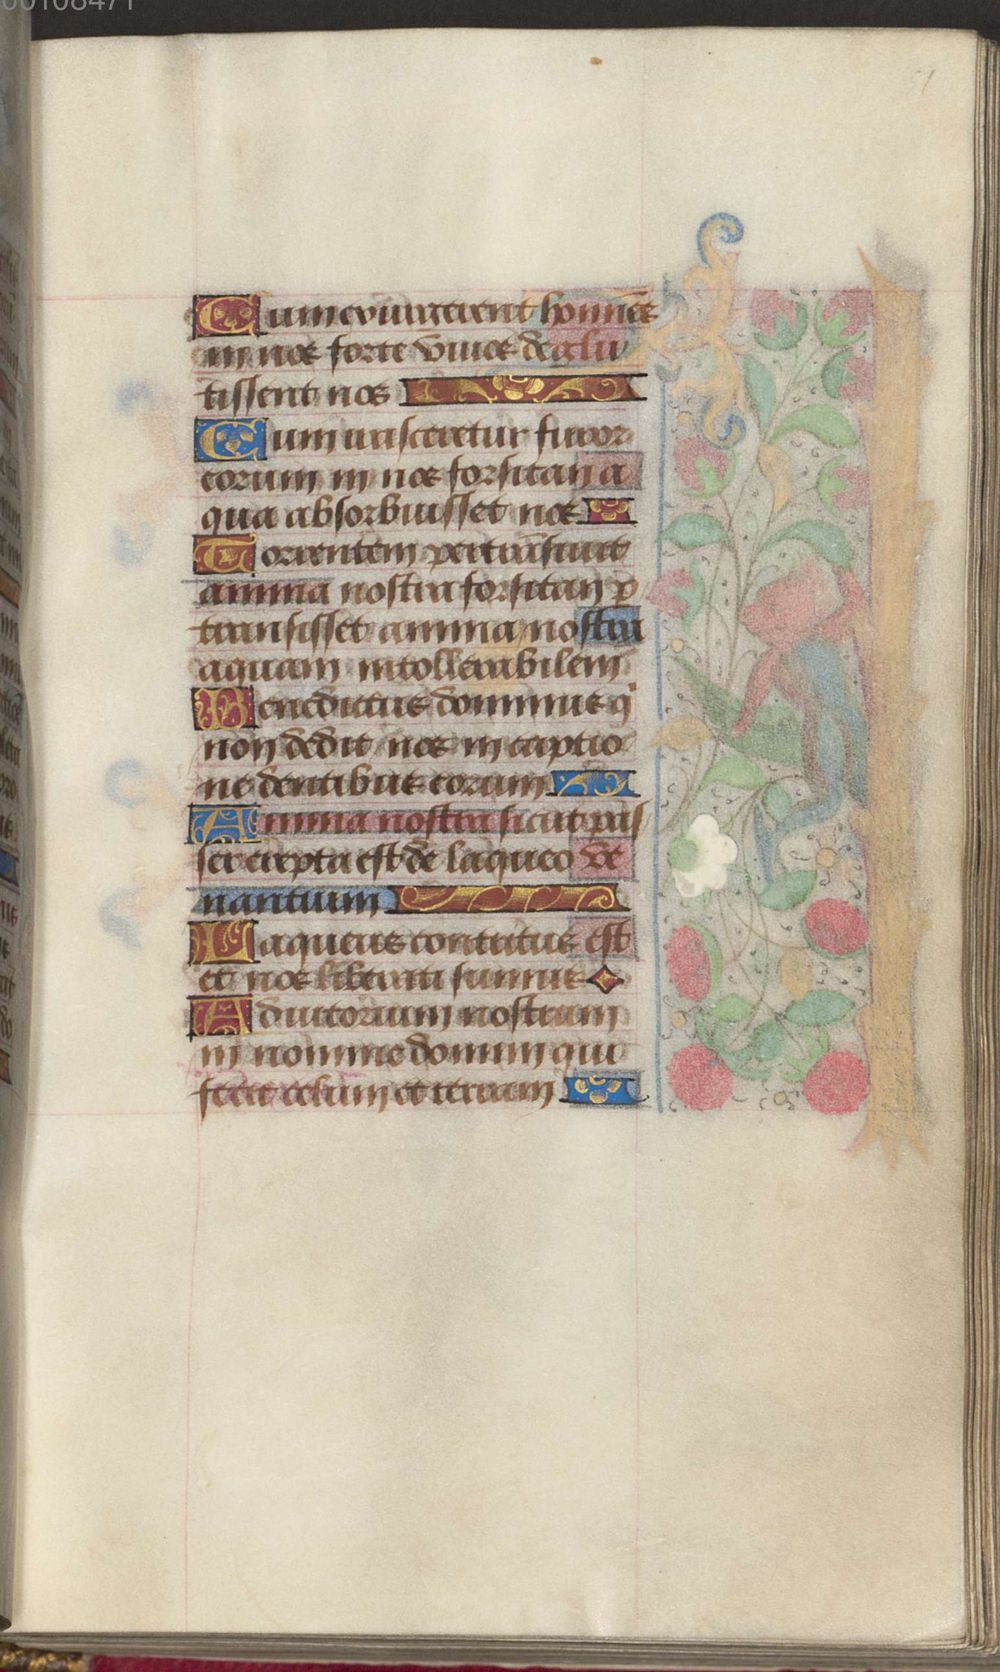 00108471
51
Cum exurgerent homīes
in nos forte vivos deglu
tissent nos
Cum irasceretur furor
eorum in nos forsitan a
qua absorbuisset nos
Torrentem pertrāsivit
anima nostra forsitan p̄
transisset anima nostra
aquam intollerabilem
Benedictus dominus q'
non dedit nos in captio
ne dentibus eorum
Anima nostra sicut pas
ser erepta est de laqueo ve
nantium
Laqueus contritus est
et nos liberati sumus
Adiutorium nostrum
in nomine domini qui
fecit celum et terram